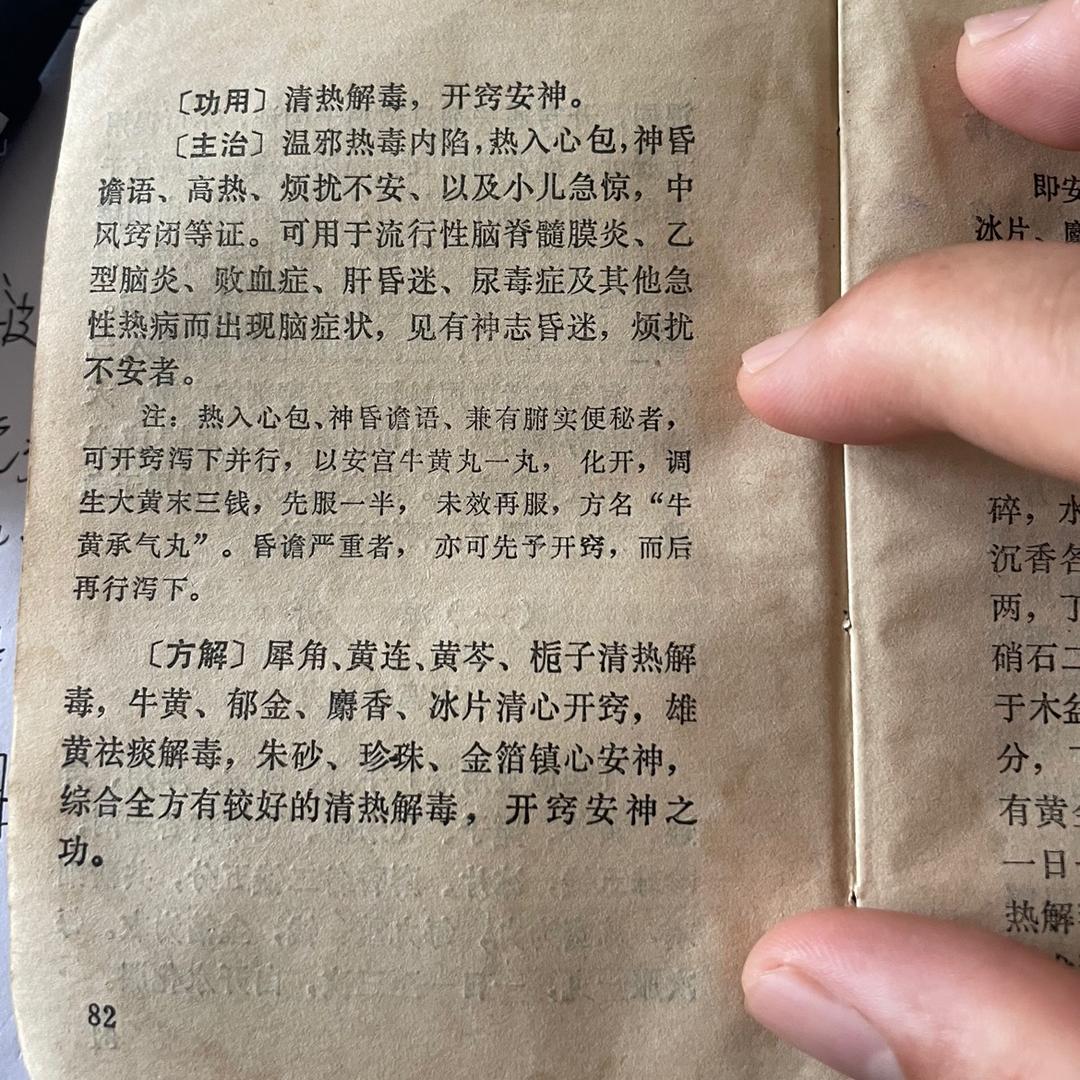 〔功用〕清热解毒，开窍安神。
〔主治〕温邪热毒内陷，热入心包，神昏
谵语、高热、烦扰不安、以及小儿急惊，中
风窍闭等证。可用于流行性脑脊髓膜炎、乙
型脑炎、败血症、肝昏迷、尿毒症及其他急
性热病而出现脑症状，见有神志昏迷，烦扰
不安者。
注：热入心包、神昏谵语、兼有腑实便秘者，
可开窍泻下并行，以安宫牛黄丸一丸，化开，调
生大黄末三钱，先服一半，未效再服，方名“牛
黄承气丸”。昏谵严重者，亦可先予开窍，而后
再行泻下。
〔方解〕犀角、黄连、黄芩、栀子清热解
毒，牛黄、郁金、麝香、冰片清心开窍，雄
黄祛痰解毒，朱砂、珍珠、金箔镇心安神，
综合全方有较好的清热解毒，开窍安神之
功。
82
即安
冰片、麝
碎，水
沉香各
两，丁
硝石二
于木盆
分，
有黄金
一日
热解